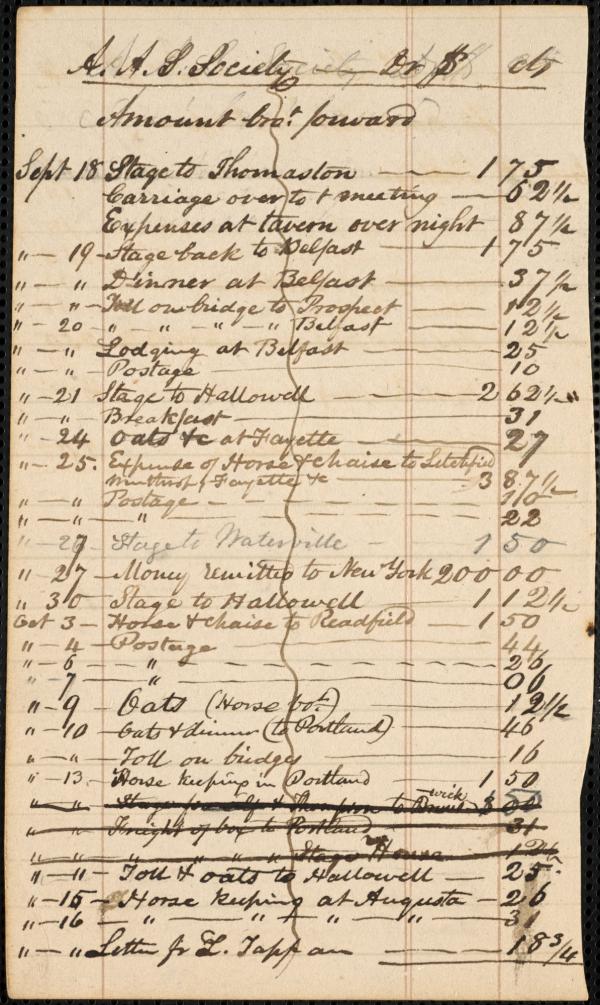 A. A. S. Society Dr $ cts
Amount bro.t forward
Sept 18 Stage to Thomaston — 1 75
Carriage over to t meeting — 62 1/2
Expenses at tavern over night 87 1/2
" — 19 — Stage back to Belfast — 1 75
" — " Dinner at Belfast — 37 1/2
" — " — Toll on bridge to Prospect — 12 1/2
" — 20 " — " — " — " Belfast — 12 1/2
" — " Lodging at Belfast — 25
" — " — Postage — 10
" — 21 Stage to Hallowell — 2 62 1/2
" — " — Breakfast — 31
" — 24 Oats &c at Fayette — 27
" — 25. Expense of Horse & chaise to Litchfield
Winthrop, Fayette &c — 3 87 1/2
" — " Postage — 10
" — " — " — 22
" — 27 — Stage to Waterville — 1 50
" — 27 — Money remitted to New York 200 00
" 30 — Stage to Hallowell — 1 12 1/2
Oct 3 — Horse & chaise to Readfield — 1 50
" — 4 — Postage — 44
" — 6 — " — 26
" — 7 — " — 06
" — 9 — Oats (Horse bo.t) — 12 1/2
" — 10 — Oats & dinner (to Portland) — 46
" — " — Toll on bridges — 16
" — 13 — Horse keeping in Portland — 1 50
" — " — Stage for self & Thompson to Brunswick 3 00
" — " — Freight of box to Portland — 31
" — " — " — " — " — Stage House
" — 11 — Toll & oats to Hallowell — 25
" — 15 — Horse keeping at Augusta — 26
" — 16 — " — " — " — " — 31
" — " — Letter fr L. Tappan — 18 3/4